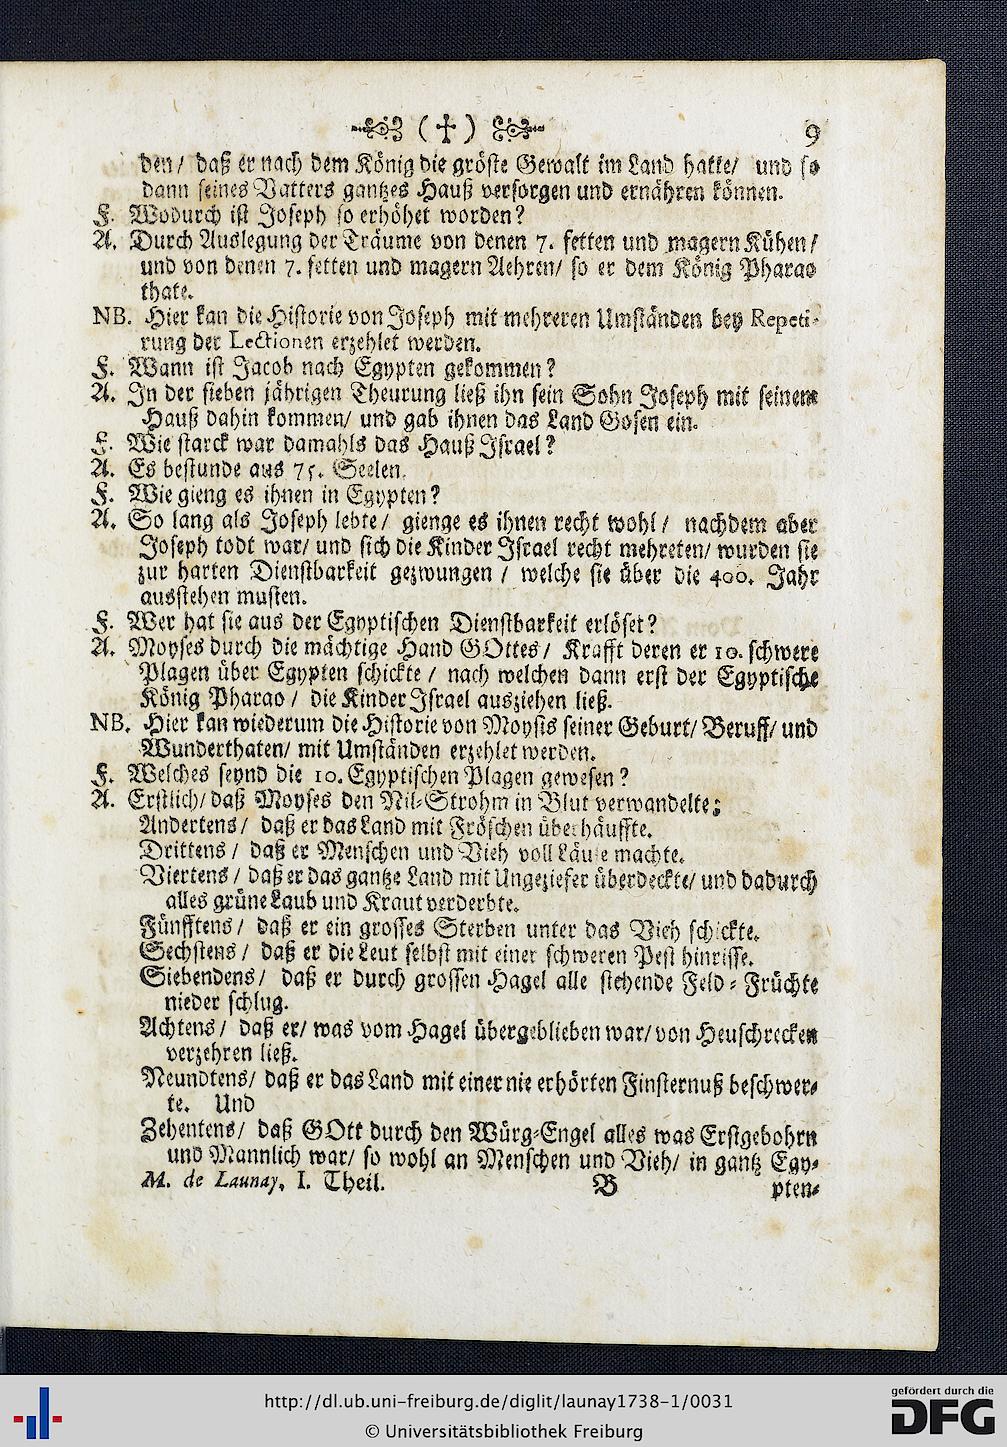 ( † ) 9
den/ daß er nach dem König die gröste Gewalt im Land hatte/ und so
dann seines Vatters gantzes Hauß versorgen und ernähren können.
F. Wodurch ist Joseph so erhöhet worden?
A. Durch Auslegung der Träume von denen 7. fetten und magern Kühen/
und von denen 7. fetten und magern Aehren/ so er dem König Pharao
thate.
NB. Hier kan die Historie von Joseph mit mehreren Umständen bey Repeti-
rung der Lectionen erzehlet werden.
F. Wann ist Jacob nach Egypten gekommen?
A. In der sieben jährigen Theurung ließ ihn sein Sohn Joseph mit seinem
Hauß dahin kommen/ und gab ihnen das Land Gosen ein.
F. Wie starck war damahls das Hauß Israel?
A. Es bestunde aus 75. Seelen.
F. Wie gieng es ihnen in Egypten?
A. So lang als Joseph lebte/ gienge es ihnen recht wohl/ nachdem aber
Joseph todt war/ und sich die Kinder Israel recht mehreten/ wurden sie
zur harten Dienstbarkeit gezwungen / welche sie über die 400. Jahr
ausstehen musten.
F. Wer hat sie aus der Egyptischen Dienstbarkeit erlöset?
A. Moyses durch die mächtige Hand GOttes/ Krafft deren er 10. schwere
Plagen über Egypten schickte / nach welchen dann erst der Egyptische
König Pharao / die Kinder Israel ausziehen ließ.
NB. Hier kan wiederum die Historie von Moysis seiner Geburt/ Beruff/ und
Wunderthaten/ mit Umständen erzehlet werden.
F. Welches seynd die 10. Egyptischen Plagen gewesen?
A. Erstlich/ daß Moyses den Nil-Strohm in Blut verwandelte;
Andertens/ daß er das Land mit Fröschen überhäuffte.
Drittens / daß er Menschen und Vieh voll Läuse machte.
Viertens / daß er das gantze Land mit Ungeziefer überdeckte/ und dadurch
alles grüne Laub und Kraut verderbte.
Fünfftens/ daß er ein grosses Sterben unter das Vieh schickte.
Sechstens/ daß er die Leut selbst mit einer schweren Pest hinrisse.
Siebendens/ daß er durch grossen Hagel alle stehende Feld-Früchte
nieder schlug.
Achtens/ daß er/ was vom Hagel übergeblieben war/ von Heuschrecken
verzehren ließ.
Neundtens/ daß er das Land mit einer nie erhörten Finsternuß beschwer-
te. Und
Zehentens/ daß GOtt durch den Würg-Engel alles was Erstgebohrn
und Mannlich war/ so wohl an Menschen und Vieh/ in gantz Egy-
M. de Launay, I. Theil. B pten-
http://dl.ub.uni-freiburg.de/diglit/launay1738-1/0031
© Universitätsbibliothek Freiburg
gefördert durch die
DFG